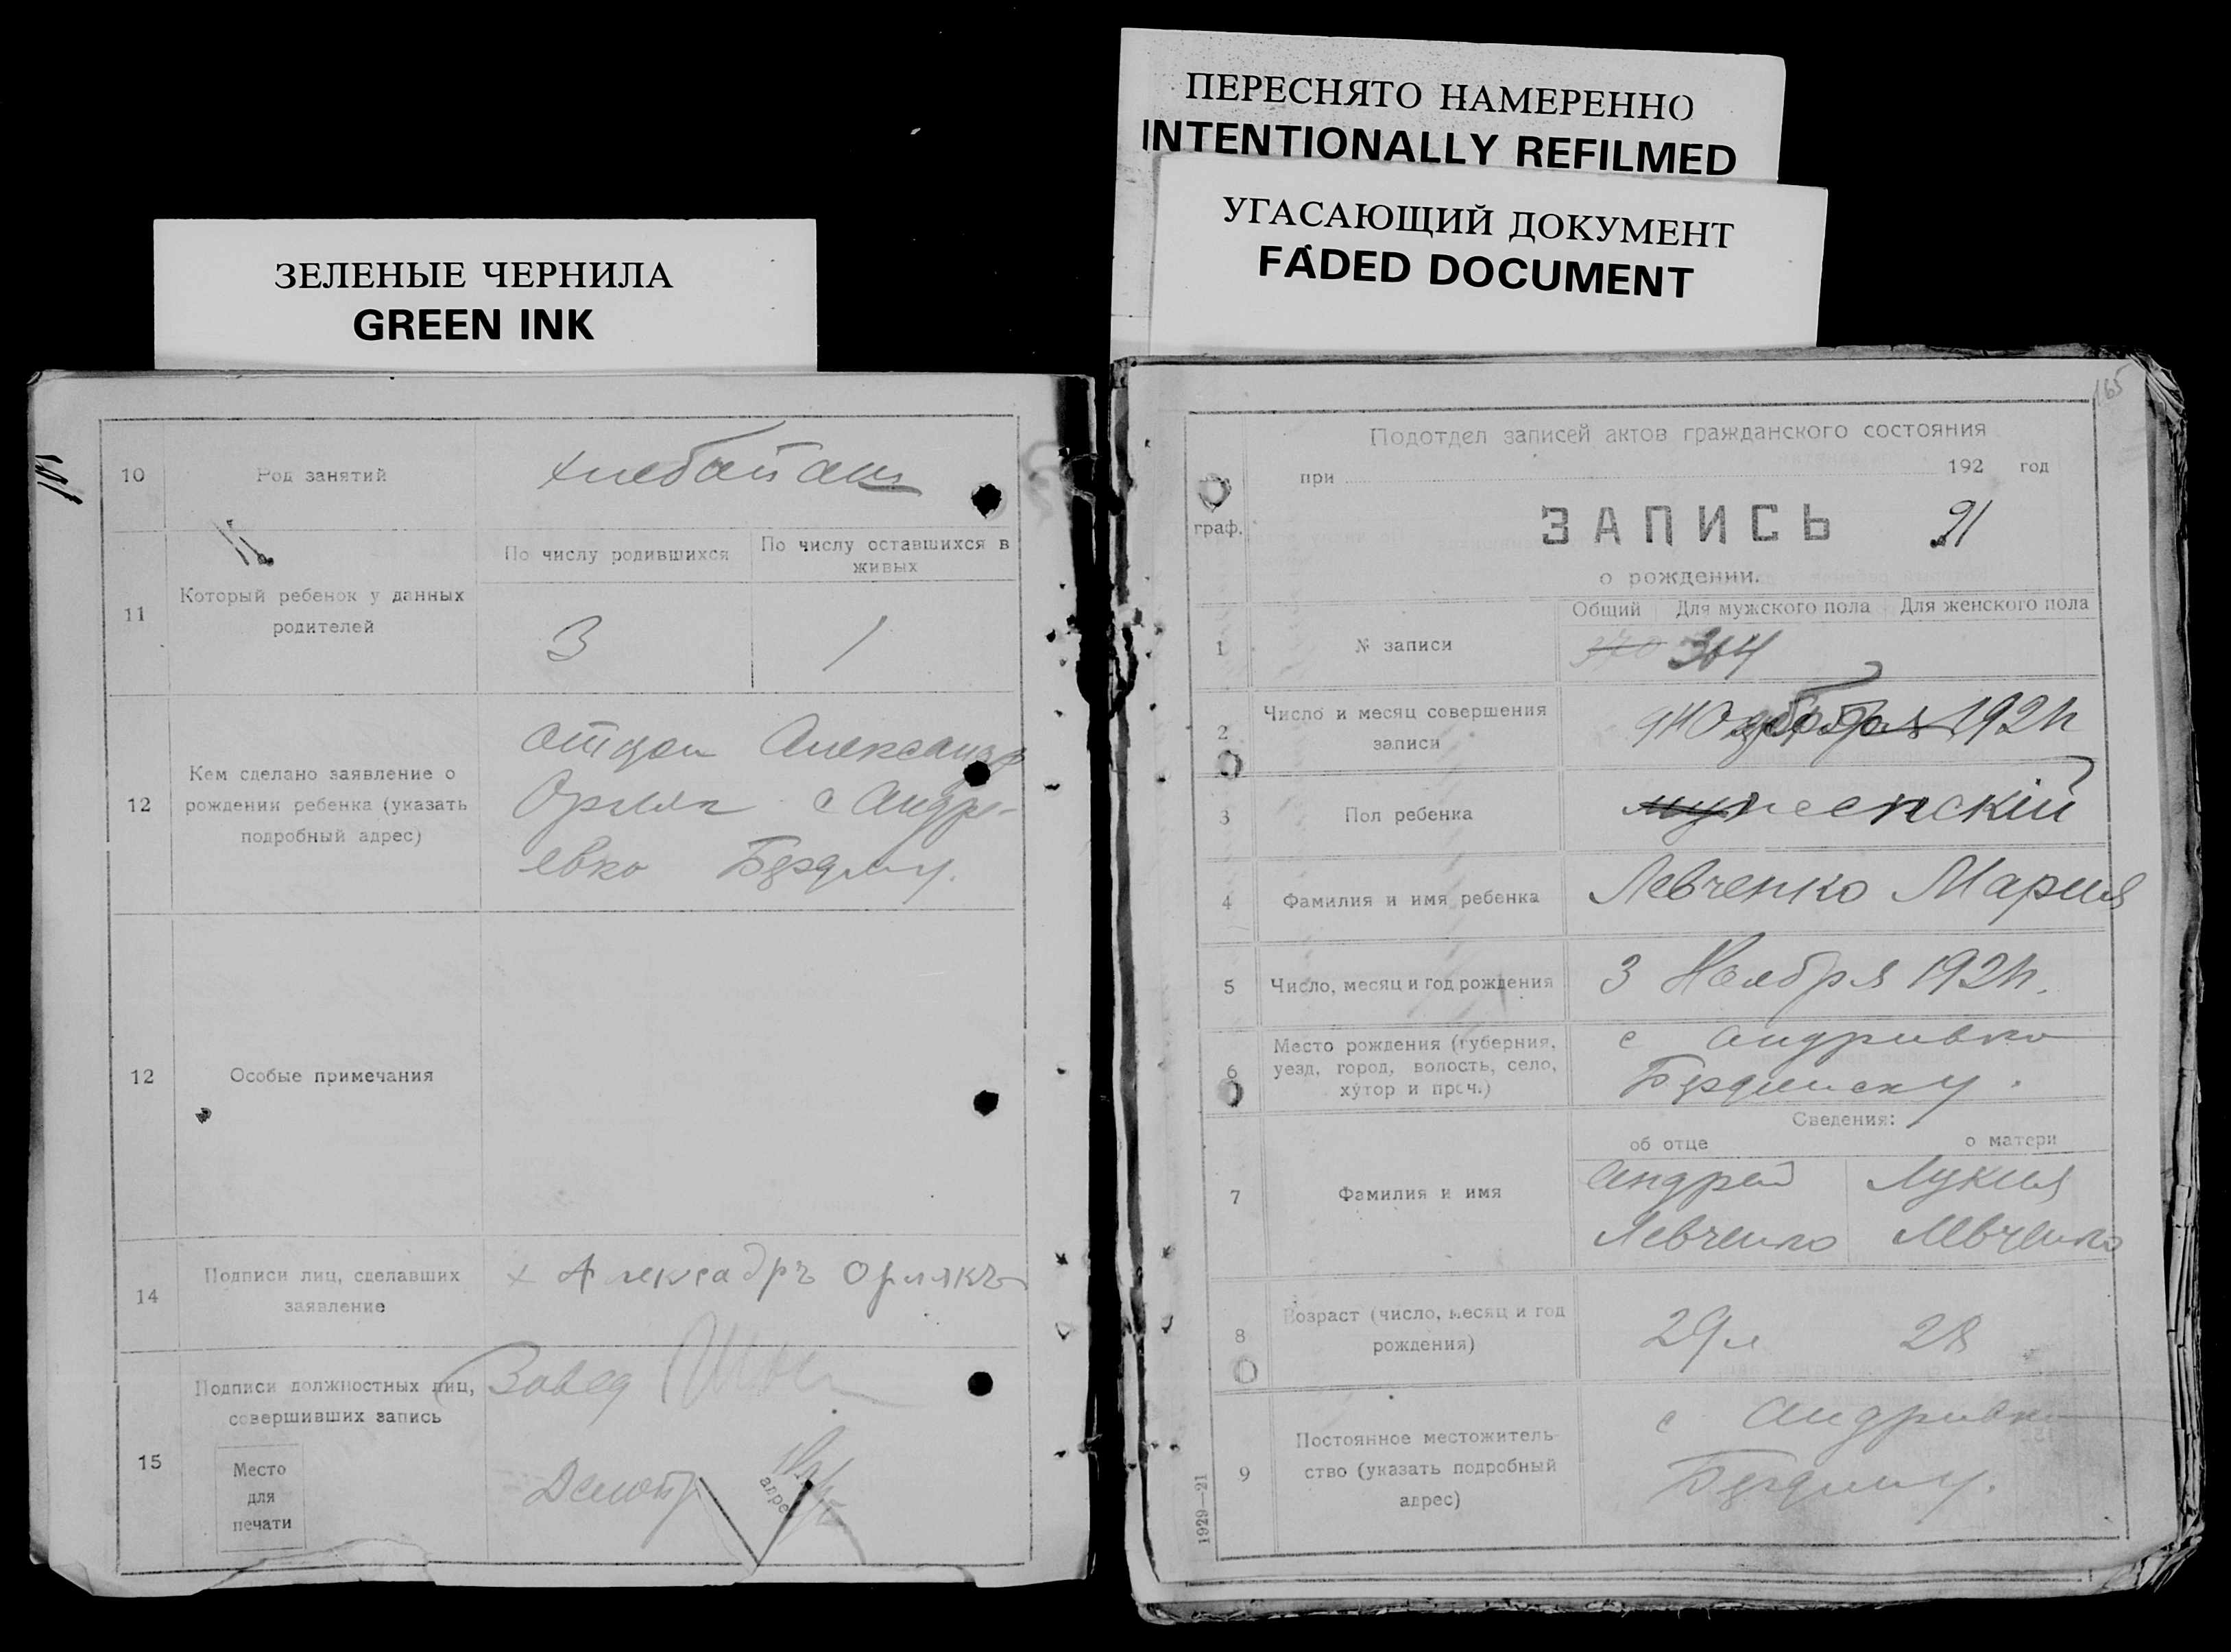 ПЕРЕСНЯТО НАМЕРЕННО
INTENTIONALLY REFILMED
УГАСАЮЩИЙ ДОКУМЕНТ
FADED DOCUMENT
ЗЕЛЕНЫЕ ЧЕРНИЛА
GREEN INK
10
Род занятий
11
Который ребенок у данных
родителей
По числу родившихся
По числу оставшихся в
живых
3
1
12
Кем сделано заявление о
рождении ребенка (указать
подробный адрес)
Александр
Орляк с Андре-
евко
12
Особые примечания
14
Подписи лиц, сделавших
заявление
х Алексадръ Орлякъ
15
Подписи должностных лиц,
совершивших запись
Завед
Место
для
печати
адрес
165
Подотдел записей актов гражданского состояния
при 192 год
граф.
ЗАПИСЬ 91
о рождении.
Общий Для мужского пола Для женского пола
1
№ записи
370 364
2
Число и месяц совершения
записи
192
3
Пол ребенка
4
Фамилия и имя ребенка
Левченко Мария
5
Число, месяц и год рождения
3 Ноября 192
6
Место рождения (губерния,
уезд, город, волость, село,
хутор и проч.)
с Андривка
Сведения:
об отце
о матери
7
Фамилия и имя
Андрей Лукия
Левченко Левченко
8
Возраст (число, месяц и год
рождения)
29л 28
9
Постоянное местожитель-
ство (указать подробный
адрес)
с Андривка
1929—21